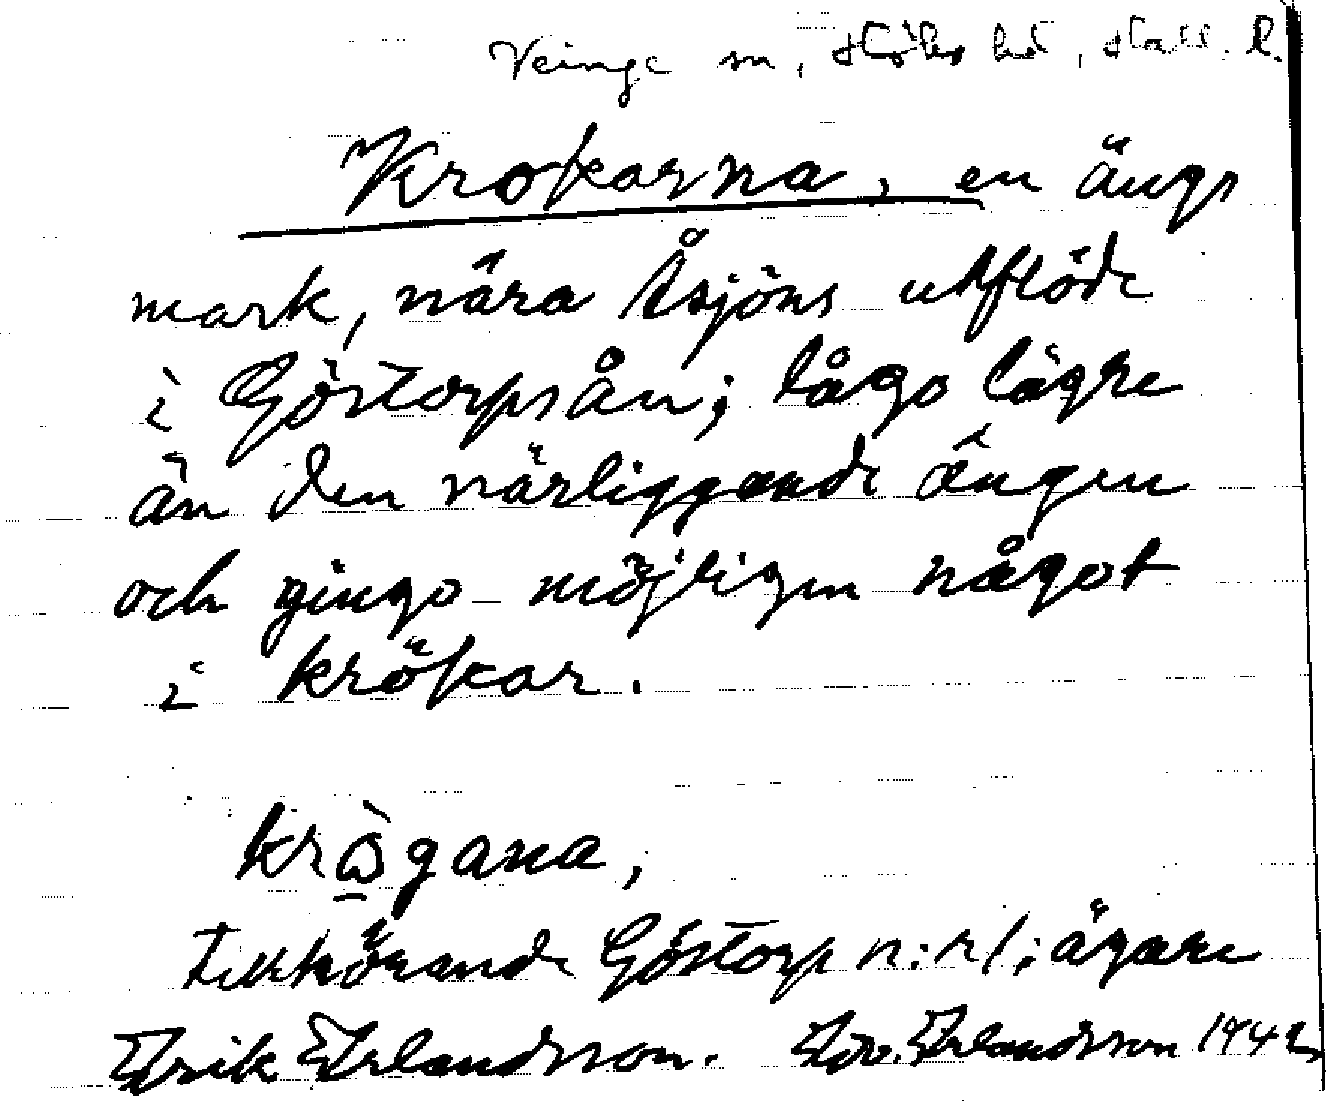 Veinge sn, Höks hd, Hall. l.
Krokarna, en ängs
mark, nära Åsjöns utflöde
i Göstorpsån; lågo lägre
än den närliggande ängen
och gingo möjligen något
i krökar.
krògana,
tillhörande Göstorp n:r 1; ägare
Erik Erlandsson. Edv. Erlandsson 1942